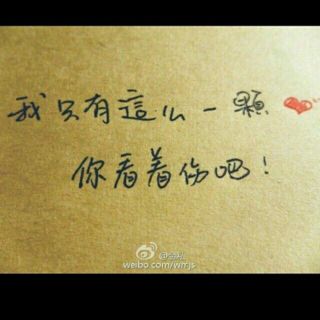 我只有這么一顆❤
你看着伤吧！
weibo.com/wrrjs